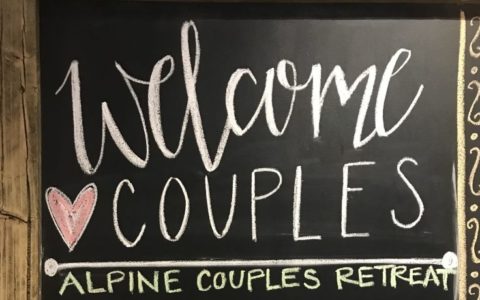 Welcome
COUPLES
ALPINE COUPLES RETREAT